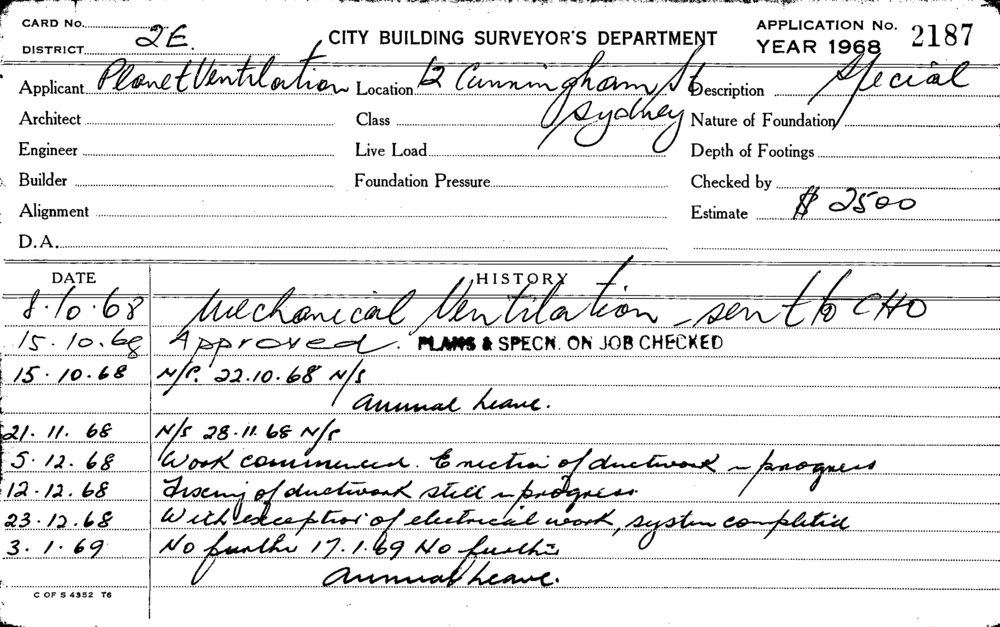 CARD No.
DISTRICT 2E.
CITY BUILDING SURVEYOR'S DEPARTMENT
APPLICATION No. 2187
YEAR 1968
Applicant Planet Ventilation Location 12 Cunningham St Description Special
Sydney
Architect Class Nature of Foundation
Engineer Live Load Depth of Footings
Builder Foundation Pressure Checked by
Alignment Estimate $ 2500
D.A.
DATE HISTORY
8.10.68 Mechanical Ventilation - sent to CHO
15.10.68 Approved. PLANS & SPECN. ON JOB CHECKED
15.10.68 N/S. 22.10.68 N/S
Annual Leave.
21.11.68 N/S 28.11.68 N/S
5.12.68 Work commenced. Erection of ductwork in progress
12.12.68 Fixing of ductwork still in progress.
23.12.68 With exception of electrical work, system completed
3.1.69 No further 17.1.69 No further
Annual Leave.
C OF S 4352 T6